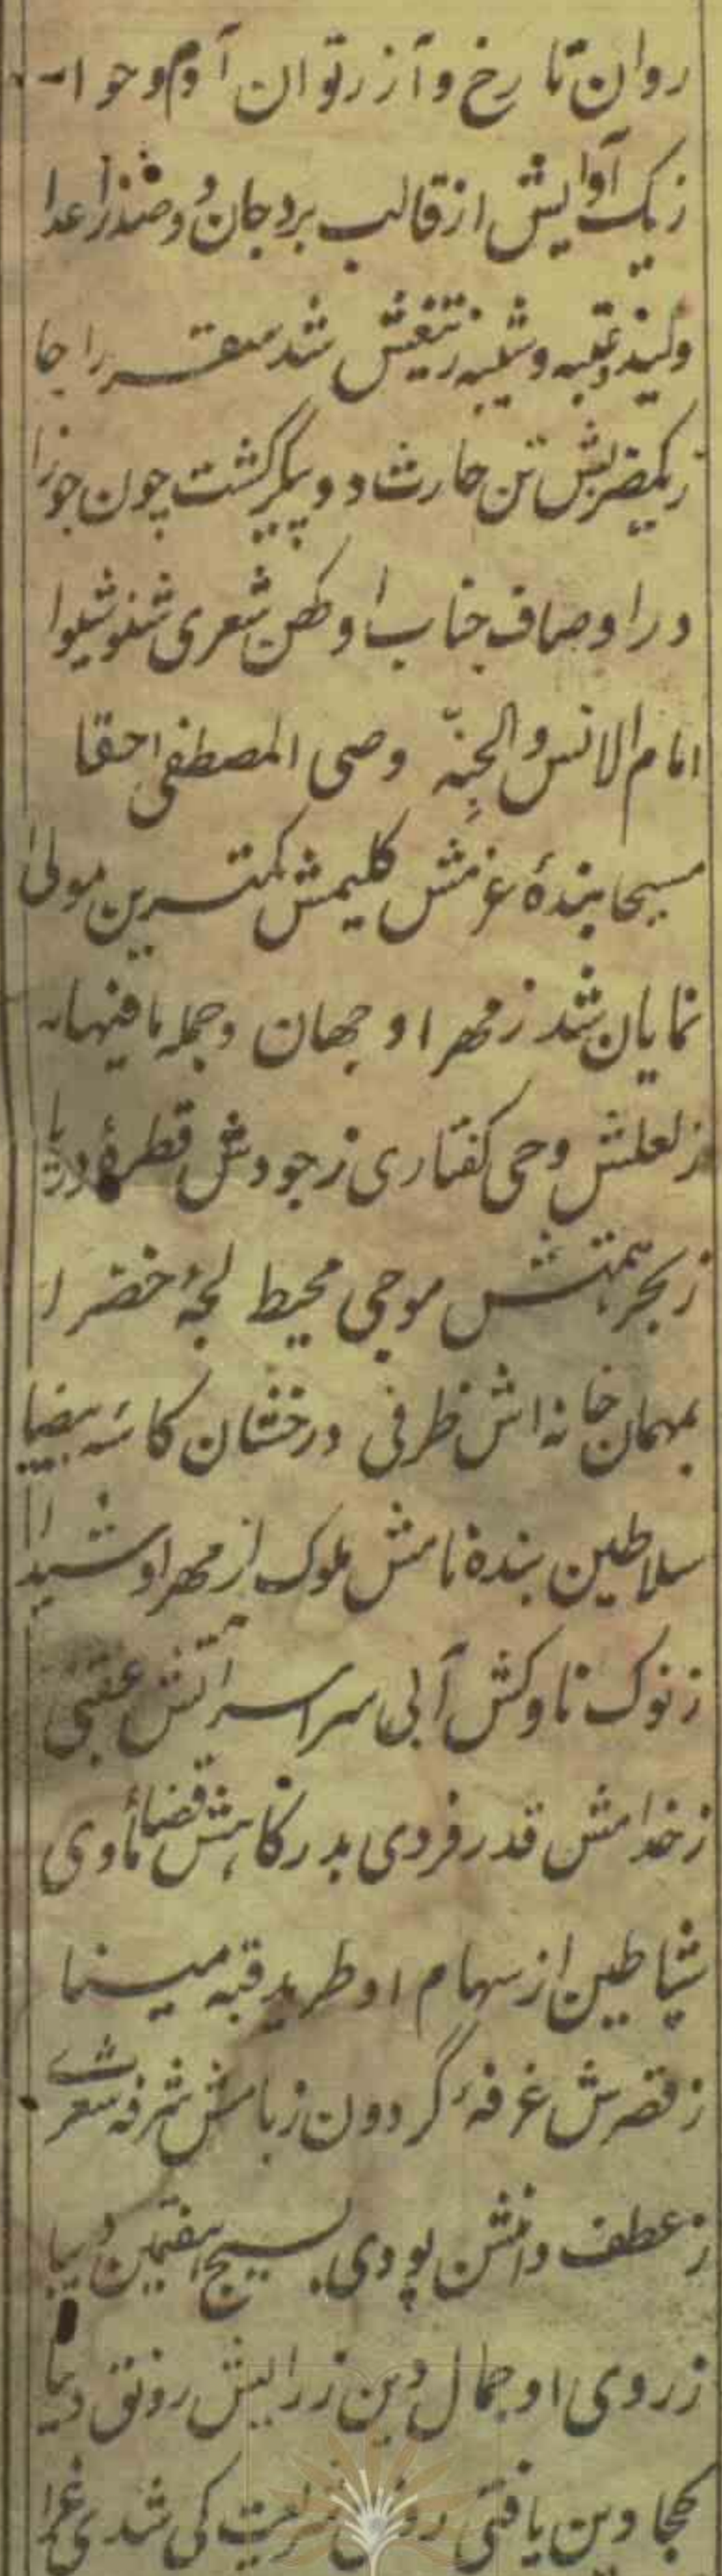 روان تارخ و آزر توان آدم و حوا
ز یک آوایش از قالب برد جان دو صد ز اعدا
ولید و عتبه و شیبه ز تیغش شد سقر را جا
ز یکضربش تن حارث دو پیکر گشت چون جوزا
در اوصاف جناب او کهن شعری شنو شیوا
امام الانس والجنّه وصی المصطفی احقا
مسیحا بندهٔ عزمش کلیمش کمترین مولی
نمایان شد ز مهر او جهان و جمله مافیها
ز لعلش وحی کفتاری ز جودش قطرهٔ دریا
ز بحر همتش موجی محیط لجهٔ خضرا
بمهمان خانه اش ظرفی درخشان کاسهٔ بیضا
سلاطین بندهٔ نامش ملوک از مهر او شیدا
ز نوک ناوکش آبی سراسر آتش عقبی
ز خدامش قدر فردی بدرکاهش قضا مأوی
شیاطین از سهام او طرید قبه مینا
ز قصرش غرفهٔ گردون ز بامش شرفه شعری
ز عطف دامنش پودی نسیج هفتمین دیبا
ز روی او جمال دین ز رایش رونق دنیا
کجا دین یافتی رونق شریعت کی شدی غرا